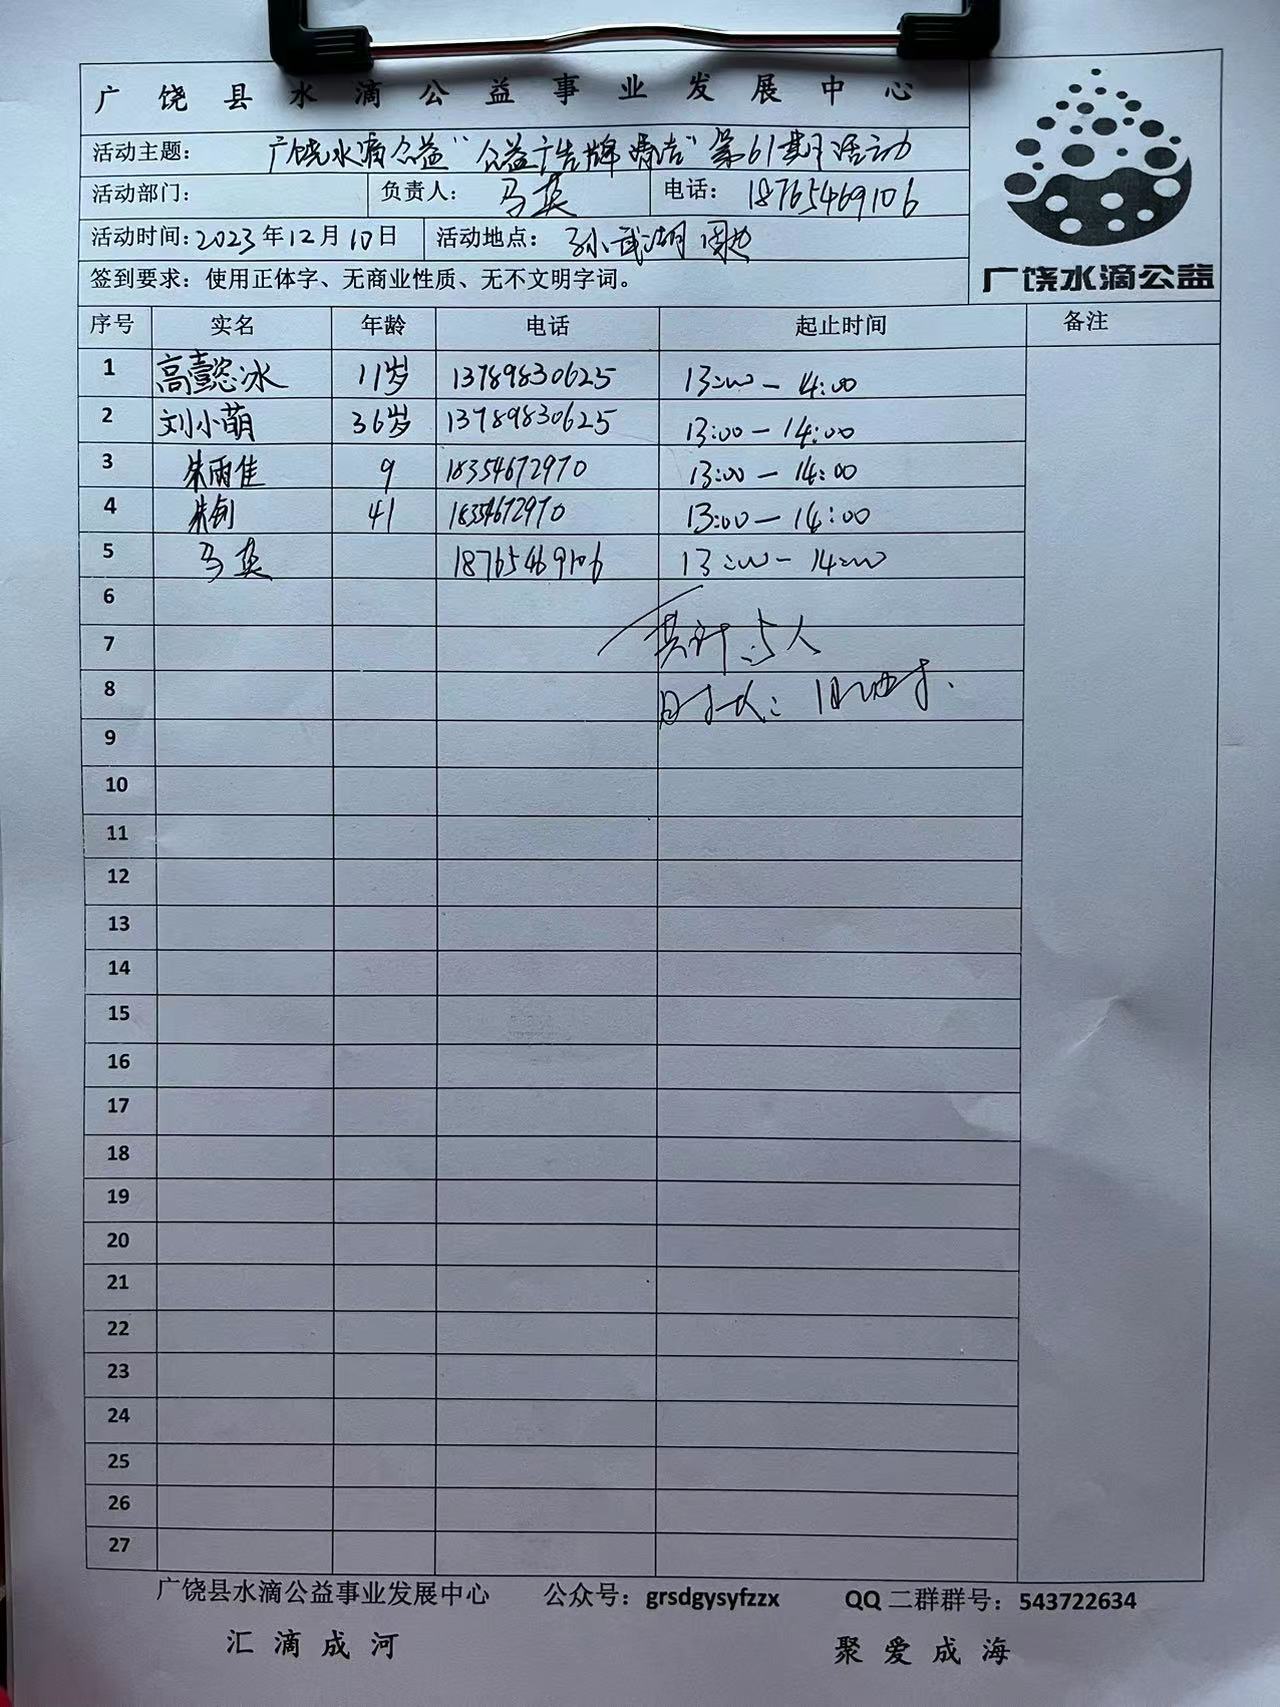 广饶县水滴公益事业发展中心
活动主题： 广饶水滴公益"公益广告牌清洁"第61期活动
活动部门： 负责人： 马英 电话： 18765469106
活动时间：2023年12月10日 活动地点： 孙武湖周边
签到要求：使用正体字、无商业性质、无不文明字词。
广饶水滴公益
序号 实名 年龄 电话 起止时间 备注
1 高懿冰 11岁 13789830625 13:00-14:00
2 刘小萌 36岁 13789830625 13:00-14:00
3 朱雨佳 9 18354672970 13:00-14:00
4 朱剑 41 18354672970 13:00-14:00
5 马英 18765469106 13:00-14:00
6
7 共计:5人
8 时长：1小时.
9
10
11
12
13
14
15
16
17
18
19
20
21
22
23
24
25
26
27
广饶县水滴公益事业发展中心 公众号：grsdgysyfzzx QQ二群群号：543722634
汇滴成河 聚爱成海